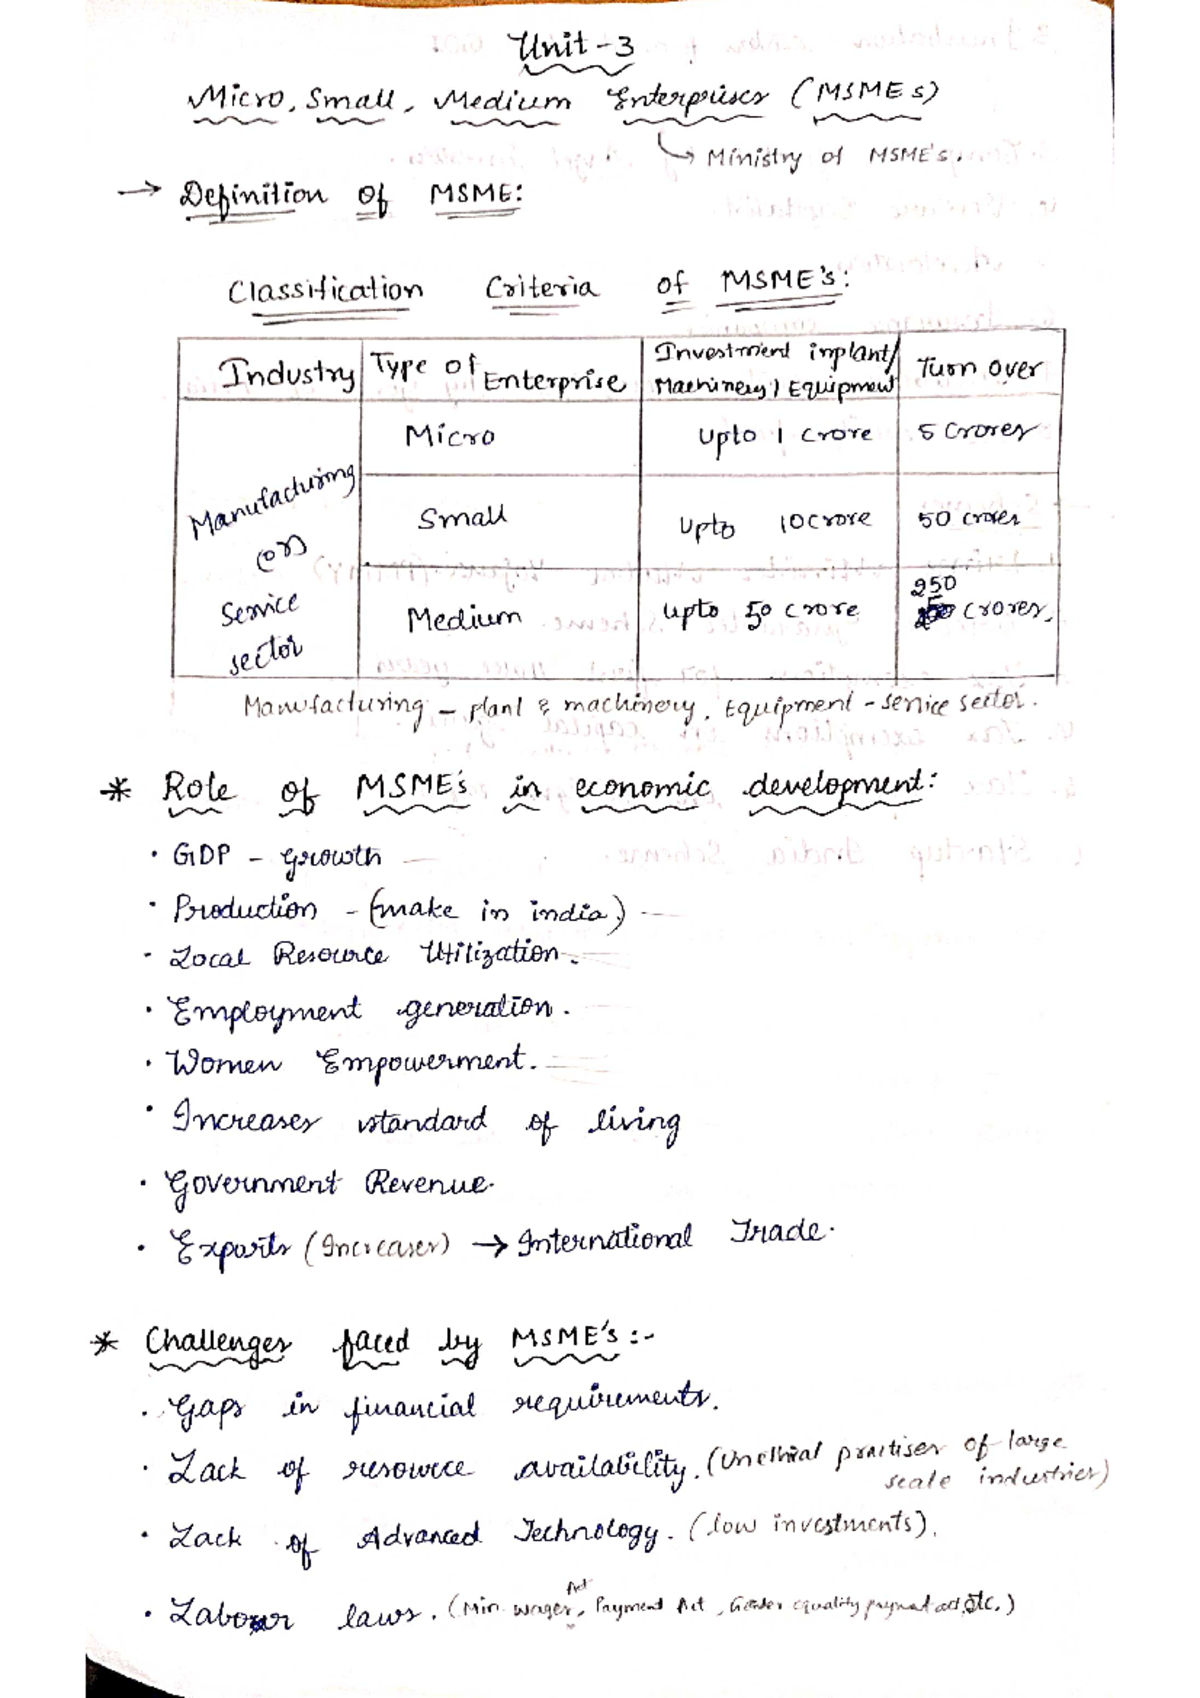 Unit - 3
Micro, Small, Medium Enterprises (MSMEs)
↳ Ministry of MSME's.
→ Definition of MSME:
Classification Criteria of MSME's:
Industry | Type of Enterprise | Investment inplant/ Machinery/ Equipment | Turn over
Manufacturing (or) Service sector | Micro | upto 1 crore | 5 Crores
Small | upto 10 crore | 50 crores
Medium | upto 50 crore | 250 crores.
Manufacturing - plant & machinery, Equipment - service sector.
* Role of MSME's in economic development:
· GDP - Growth
· Production - (make in india)
· Local Resource Utilization.
· Employment generation.
· Women Empowerment.
· Increases standard of living
· Government Revenue.
· Exports (Increases) → International Trade.
* Challenges faced by MSME's :-
· Gaps in financial requirements.
· Lack of resource availability. (Unethical practises of large
scale industries)
· Lack of Advanced Technology. (low investments).
· Labour laws. (Min. wages Act, Payment Act, Gender equality payment act, etc.)